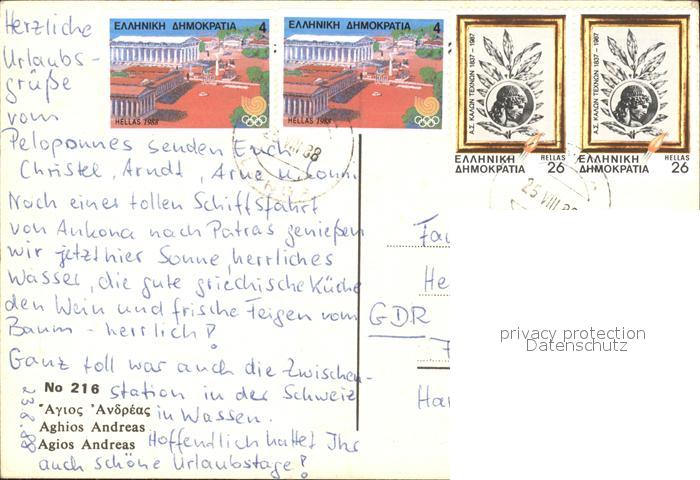 Herzliche
Urlaubs-
grüße
vom
Peloponnes senden Euch
Christel, Arndt, Arne u.
Nach einer tollen Schiffsfahrt
von Ankona nach Patras genießen
wir jetzt hier Sonne, herrliches
Wasser, die gute griechische Küche
den Wein und frische Feigen vom
Baum - herrlich!
Ganz toll war auch die Zwischen-
station in der Schweiz
in Wassen.
Hoffentlich hattet Ihr
auch schöne Urlaubstage!
No 216
Ἅγιος Ἀνδρέας
Aghios Andreas
Agios Andreas
ΕΛΛΗΝΙΚΗ ΔΗΜΟΚΡΑΤΙΑ 4
HELLAS 1988
ΕΛΛΗΝΙΚΗ ΔΗΜΟΚΡΑΤΙΑ 4
HELLAS 1988
Α.Σ. ΚΑΛΩΝ ΤΕΧΝΩΝ 1837-1987
ΕΛΛΗΝΙΚΗ HELLAS
ΔΗΜΟΚΡΑΤΙΑ 26
Α.Σ. ΚΑΛΩΝ ΤΕΧΝΩΝ 1837-1987
ΕΛΛΗΝΙΚΗ HELLAS
ΔΗΜΟΚΡΑΤΙΑ 26
25 VIII 88
He
GDR
Ha
privacy protection
Datenschutz